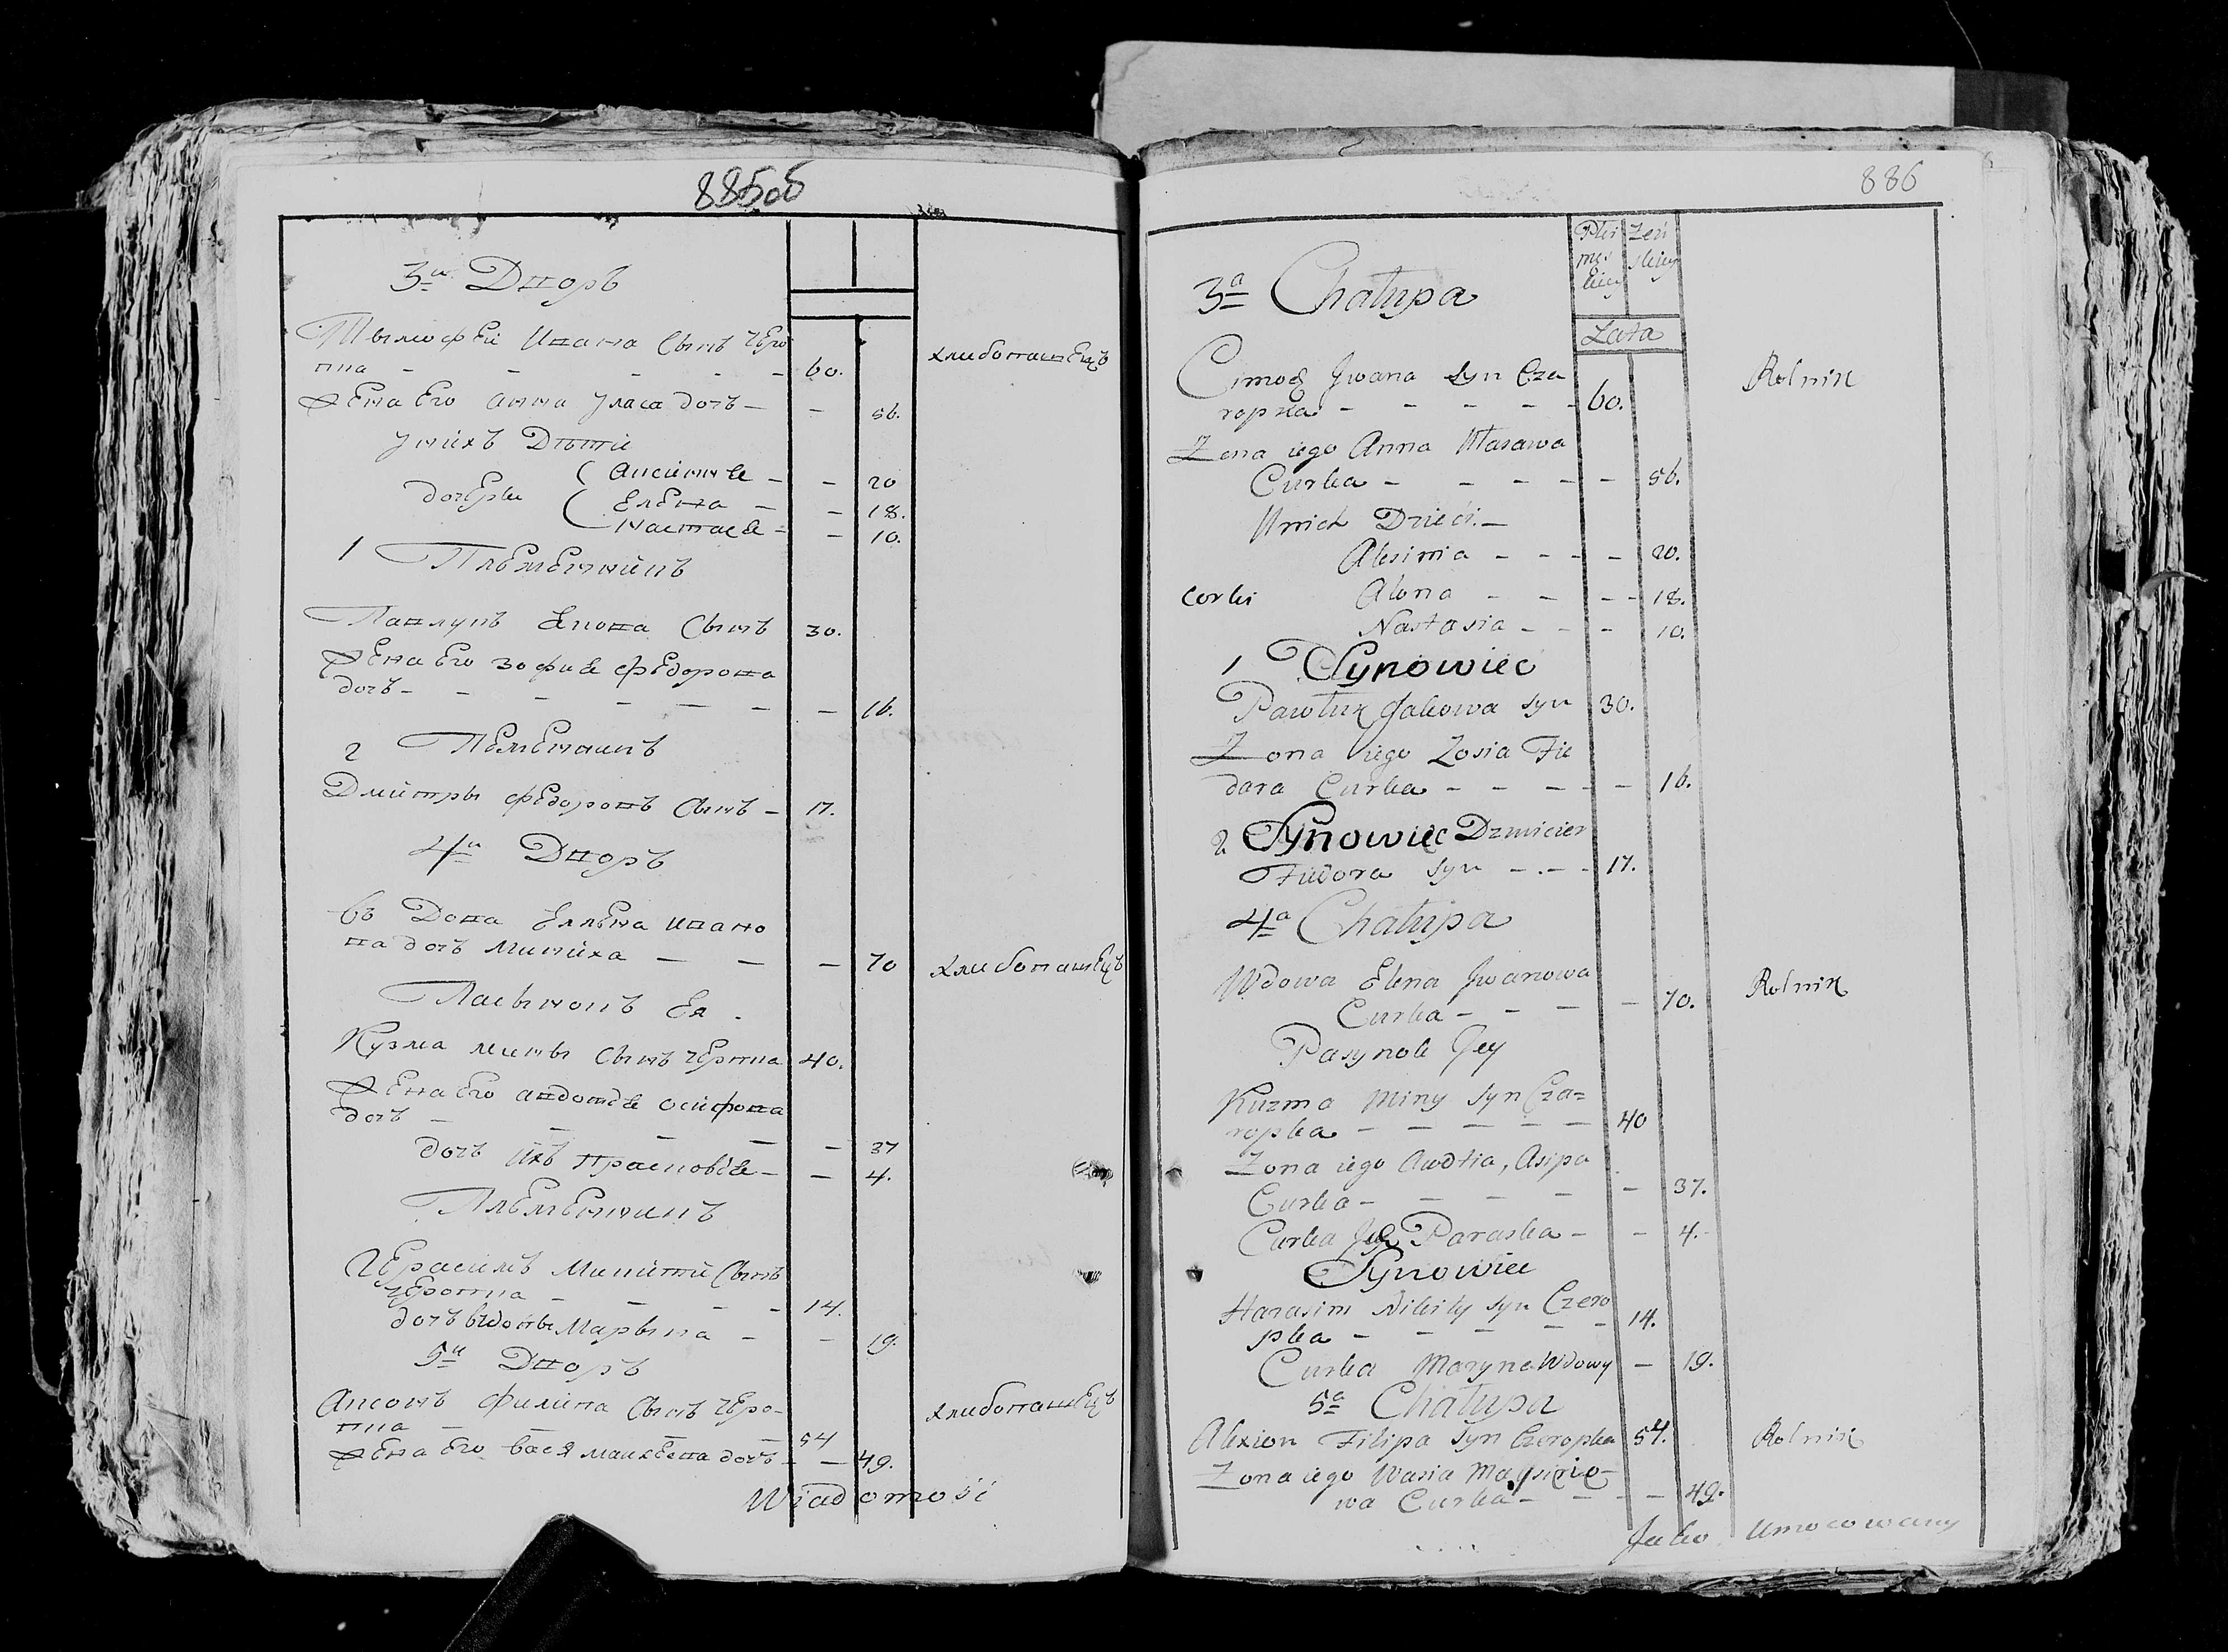 885об
3й Дворъ
Тымофей Ивана Сынъ Черо
пка - - - - - 60. хлибопашецъ
Жена Его анна уласа дочъ - - 56.
унихъ Дѣти
Аксинне - - 20
дочеры Елена - - 18.
Настасе - - 10.
1 Племенникъ
Павлукъ Якова Сынъ 30.
Жена Его зофие Федорова
дочъ - - - - - - 16.
2 Племеникъ
Дмитры федоровъ Сынъ - 17.
4й Дворъ
въ Дова Еллена ивано
ва дочъ Микиха - - - 70 хлибопашецъ
Пасынокъ Ея.
Кузма мины Сынъ черопка 40.
Жена Его авдотье осифова
дочъ - - - - - 37
дочъ ихъ Прасковье - - 4.
Племенникъ
Герасимъ Микиты Сынъ
Черопка - - - - 14.
дочъ вѣдовы Марына - - 19.
5й Дворъ
Аксонъ Филипа Сынъ Черо-
пка - - - 54 хлибопашецъ
Жена Его Вася маихеева дочъ - - 49.
Wiadomość
886
Płci Zeń
męs skiey
kiey
3a Chałupa
Lata
Cimoch Jwana Syn Cza
ropka - - - - - 60. Rolnik
Zona iego Anna Ułasawa
Curka - - - - - 56.
Unich Dzieci. -
Aksinia - - - - 20.
corki Alona - - - - 18.
Nastasia - - - - 10.
1 Synowiec
Pawluk Jakowa Syn 30.
Zona iego Zosia Fie
dara Curka - - - - - 16.
2 Synowiec Dzmicier
Fiedora Syn - - - 17.
4a Chałupa
Wdowa Elena Jwanowa
Curka - - - - 70. Rolnik
Pasynok Jey
Kuzma Miny Syn Cza=
ropka - - - - - 40
Zona iego Awdtia, Asipa
Curka - - - - - 37.
Curka Jch Paraska - - 4.
Synowiec
Harasim Nikity Syn Czero
pka - - - - - 14.
Curka Maryna Wdowy - 19.
5a Chałupa
Alexion Filipa Syn Czeropka 54. Rolnik
Zona iego Wasia
wa Curka - - - - 49.
Jako Umocowany